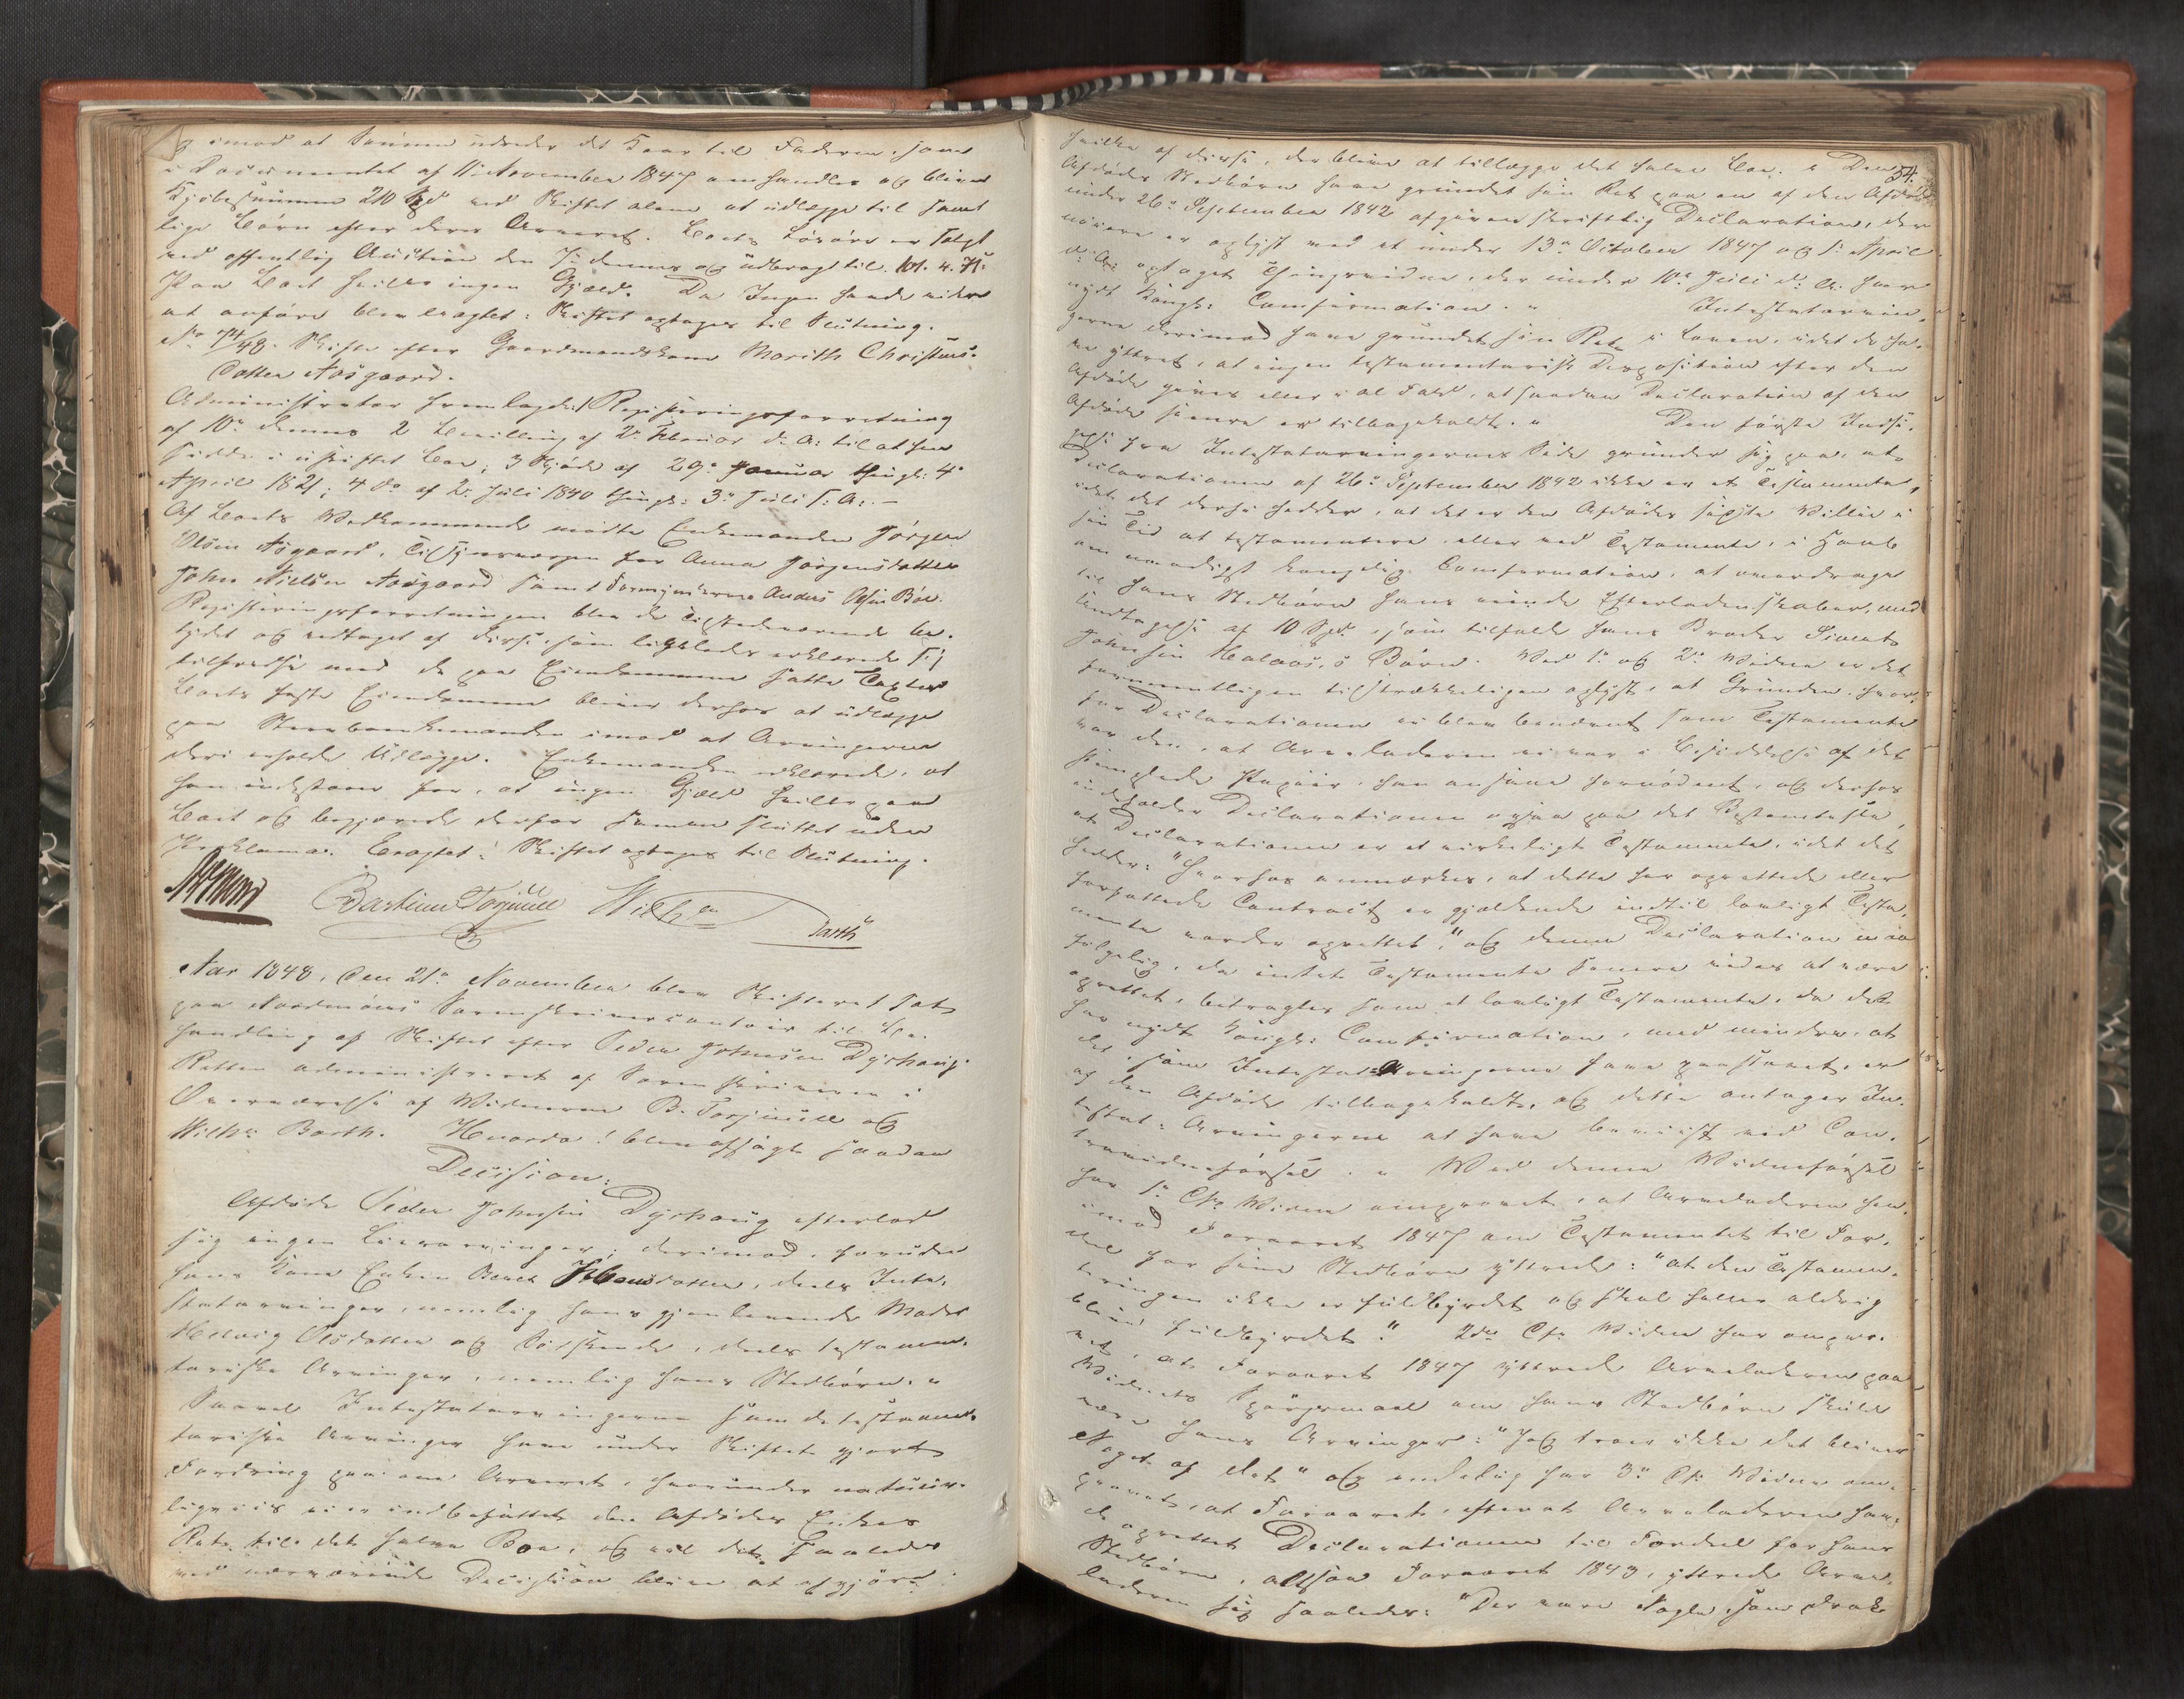 imod at Sønnen udreder det Kaar til Faderen, som
i Documentet af 11 November 1847 omhandles og bliver
Kjøbesummen 210 Spd ved Skiftet alene at udlægge til samt
lige Børn efter deres Arveret. Boets Løsøre er solgt
ved offentlig Auction den 7de dennes og udbragt til 101. 4. 71.
Paa Boet hviler ingen Gjæld. Da Ingen havde videre
at anføre blev eragtet: Skiftet optages til Slutning.
No 74/48. Skifte efter Gaardmandskone Marith Christens-
datter Aasgaard.
Administrator fremlagde 1 Registreringsforretning
af 10de dennes 2 Bevilling af 2 Februar d. A. til at hen
sidde i uskiftet Boe, 3 Skjøde af 29de Januar thingl: 4de
April 1821; 4 do af 2 Juli 1840 thingl: 3die Juli s. A. -
Af Boets Vedkommende mødte Enkemanden Jørgen
Olsen Aasgaard, Tilsynsværgen for Anna Jørgensdatter
John Nielsen Aasgaard samt Formynderen Anders Olsen Bøe.
Registreringsforretningen blev de Tilstedeværende be-
tydet og vedtaget af disse, som ligeledes erklærede sig
tilfredse med de paa Eiendommene satte Taxter
Boets faste Eiendomme bliver derfor at udlægge
paa Stervboenkemanden imod at Arvingerne
deri erholde Udlægge. Enkemanden erklærede, at
han indestaaer for, at ingen Gjæld hviler paa
Boet og begjærede derfor samme sluttet uden
Proklama. Eragtet: Skiftet optages til Slutning.
Bastian Torjuul Wilh.
Barth
Aar 1848, den 21de November blev Skifteret sat
paa Nordmøers Sorenskrivercontoir til Be-
handling af Skiftet efter Peder Johnsen Dyrhaug.
Retten administreret af Sorenskriveren i
Overværelse af Vidnerne B. Torjuul og
Wilh: Barth. Hvorda: blev afsagt saadan
Decision:
Afdøde Peder Johnsen Dyrhaug efterlod
sig ingen Livsarvinger; derimod, foruden
hans Kone Enken Beret Ibbensdatter, deels Inte-
statarvinger, nemlig hans gjenlevende Moder
Hellvig Olsdatter og Sødskende, deels testamen-
tariske Arvinger, nemlig hans Stedbørn. "
Saavel Intestatarvingerne som de testamen-
tariske Arvinger have under Skiftet gjort
Fordring paa om Arveret, hvorunder naturlig-
ligviis ei er indbefattet den Afdødes Enkes
Ret til det halve Boe, og vil det saaledes
ved nærværende Decision blive at afgjøre
34.
hvilke af disse, der bliver at tillægge det halve Boe. " Den
Afdødes Stedbørn have grundet sin Ret paa en af den Afdøde
under 26de September 1842 afgiven skriftlig Declaration, der
nærmere er oplyst ved et under 13de October 1847 og 1ste April
d: A: optaget Thingsvidne, der under 10de Juli d: A: har
nydt Kongl: Confirmation. " Intestatarvin-
gerne derimod have grundet sin Ret i Loven, idet de ha-
ve yttret, at ingen testamentarisk Disposition efter den
Afdøde gives eller i al Fald, at saadan Declaration af den
Afdøde senere er tilbagekaldt. " Den første Indsi-
gelse fra Intestatarvingernes Side grunder sig paa, at
Declarationen af 26de September 1842 ikke er et Testamente,
idet det derhen hedder, at det er den Afdødes sidste Villie i
sin Tid at testamentere eller ved Testamente, i Haab
om naadigst kongelig Confirmation, at overdrage
til hans Stedbørn hans eiende Efterladenskaber, med
Undtagelse af 10 Spd, som tilfalde hans Broder Sivert
Johnsen Halaas's Børn. Ved 1ste og 2det Vidne er det
formeentligen tilstrækkeligen oplyst, at Grunden, hvor-
for Declarationen ei blev benævnt som Testamente
var den, at Arveladeren ei var i Besiddelse af det
stemplede Papiir, han ansaae fornødent, og derfor
indeholder Declarationen ogsaa paa det Bestemteste,
at Declarationen er et virkeligt Testamente, idet det
hedder: "Hvorhos anmærkes, at dette her oprettede eller
forfattede Contract er gjældende indtil lovligt Testa-
mente vorder oprettet," og denne Declaration maa
følgelig, da intet Testamente senere vides at være
oprettet, betragtes som et lovligt Testamente, da det
har nydt Kongl: Confirmation, med mindre, at
det, som Intestat-Arvingerne have paastaaet, er
af den Afdøde tilbagekaldt, og dette antager In-
testat-Arvingerne at have beviist ved Con-
travidneførsel. " Ved denne Vidneførsel
har 1ste Ctr. Vidne omprovet, at Arveladeren hen-
imod Foraaret 1847 om Testamentet til For-
del for sine Stedbørn yttrede: "at den Testamen-
teringen ikke er fuldbyrdet og skal heller aldrig
blive fuldbyrdet." 2det Ctr. Vidne har ompro-
vet, at Foraaret 1847 yttrede Arveladeren paa
Vidnets Spørgsmaal om hans Stedbørn skulde
være hans Arvinger: "Jeg troer ikke det bliver
Noget af det" og endelig har 3die Ctr. Vidne om-
provet, at Foraaret, efterat Arveladeren hav-
de oprettet Declarationen til Fordeel for hans
Stedbørn, altsaa Foraaret 1843, yttrede Arve-
laderen sig saaledes: "Der vare Nogle, som